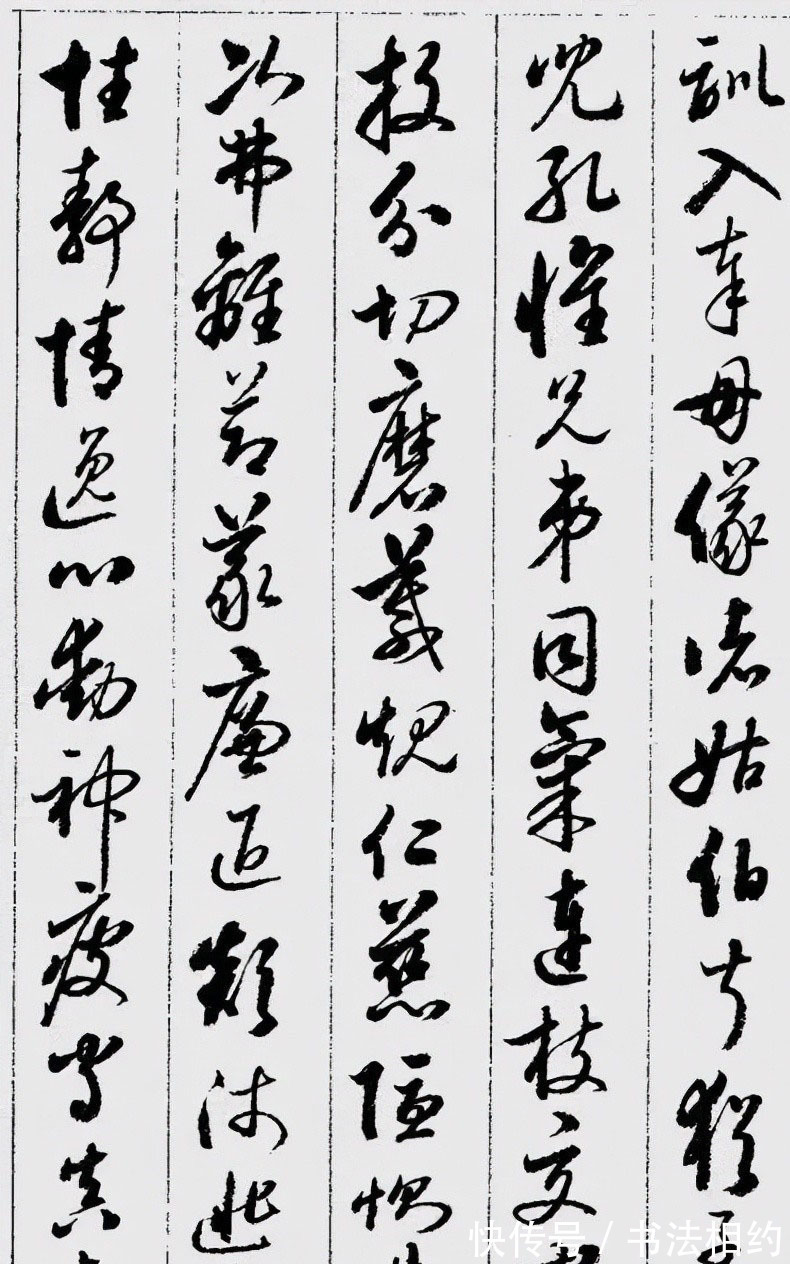 訓入奉母儀諸姑伯叔猶
兒孔懷兄弟同氣連枝交
投分切磨箴規仁慈隱惻
次弗離節義廉退顛沛匪
性靜情逸心動神疲守真
快传号 / 书法相约